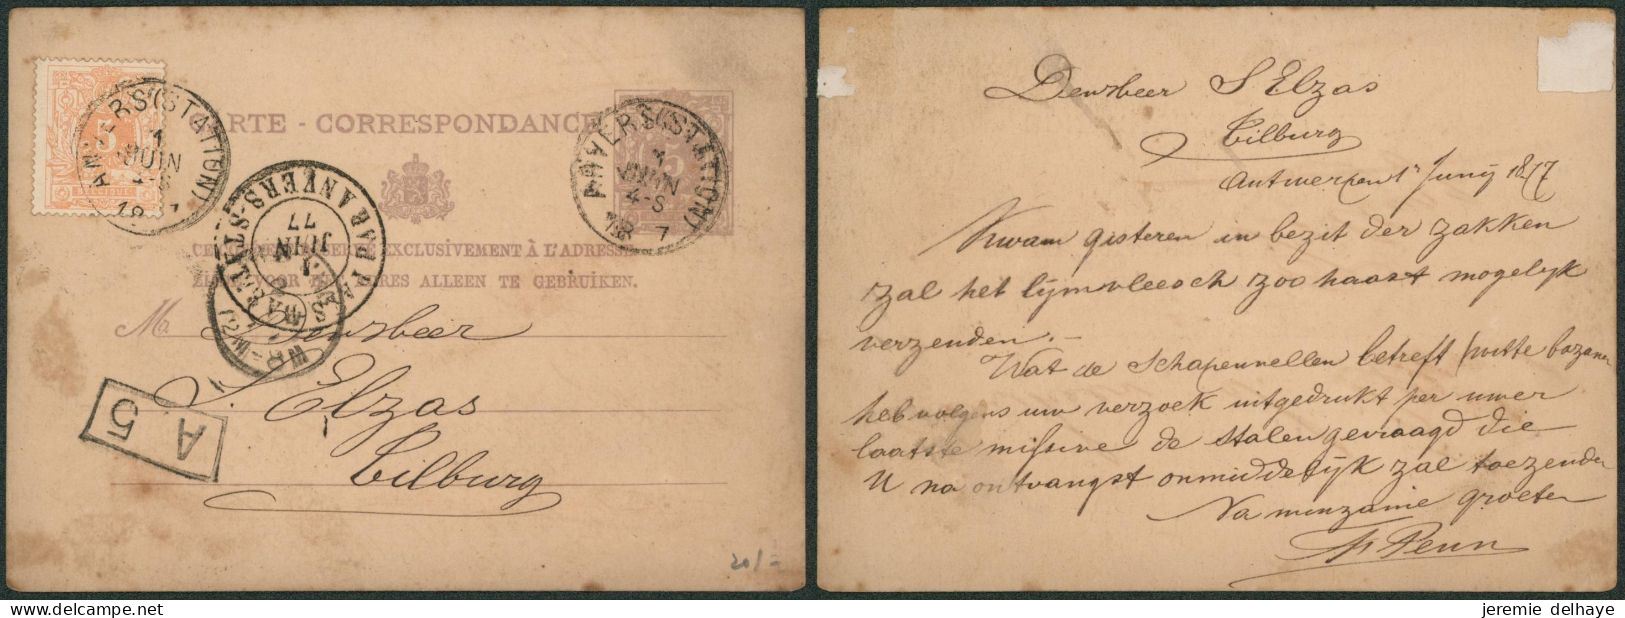 ANVERS (STATION)
1
JUIN
4-S
5
BELGIQUE
CARTE - CORRESPONDANCE
ANVERS (STATION)
1
JUIN
4-S
PAR ANVERS-STAT
1
JUIN
77
EXCLUSIVEMENT À L'ADRESSE
ADRES ALLEEN TE GEBRUIKEN.
Mr Densbeer
S. Elzas
Tilburg
A
5
20/-
Densbeer S Elzas
Tilburg
Antwerpen 1 Junÿ 1877
Kwam gisteren in bezit der zakken
zal het lijmvleesch zoo haast mogelyk
verzenden. -
Wat de Schapenvellen betreft (witte bazanen
heb volgens uw verzoek uitgedrukt per uwer
laatste missive de stalen gevraagd die
U na ontvangst onmiddelyk zal toezenden
Na minzame groeten
Penn
jeremie delhaye